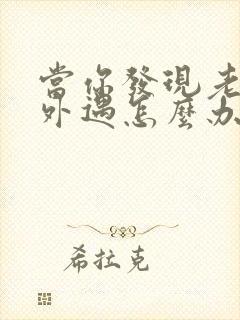 當你發現老
外遇怎麼办
希拉克